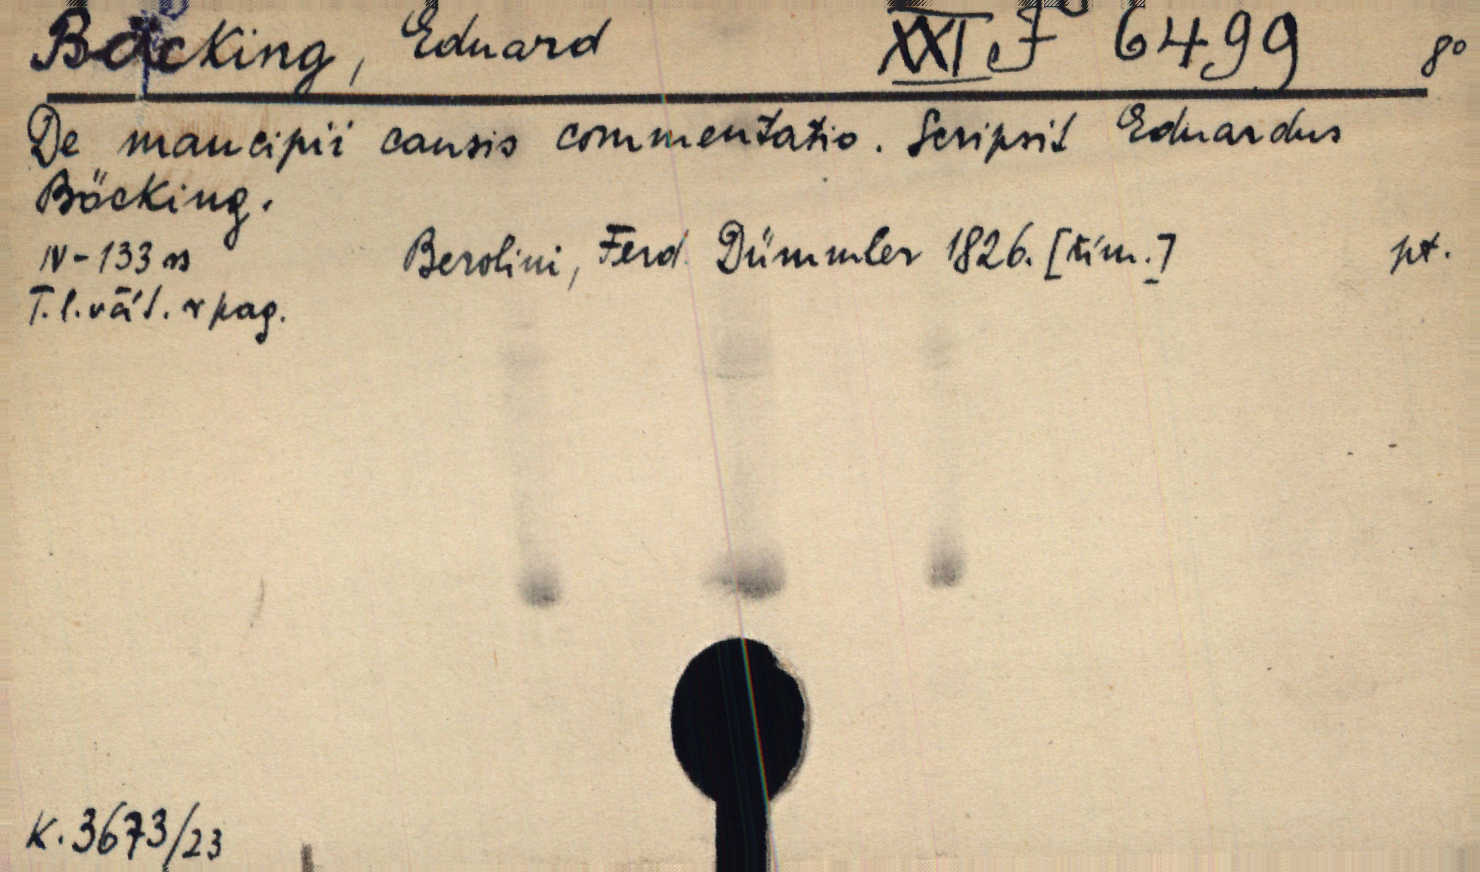 Böcking, Eduard XXI F 6499 8°
De mancipii causis commentatio. Scripsit Eduardus
Böcking.
IV-133 ss Berolini, Ferd. Dümmler 1826. [řím.] pt.
T.l.váz. v pag.
K.3673/23